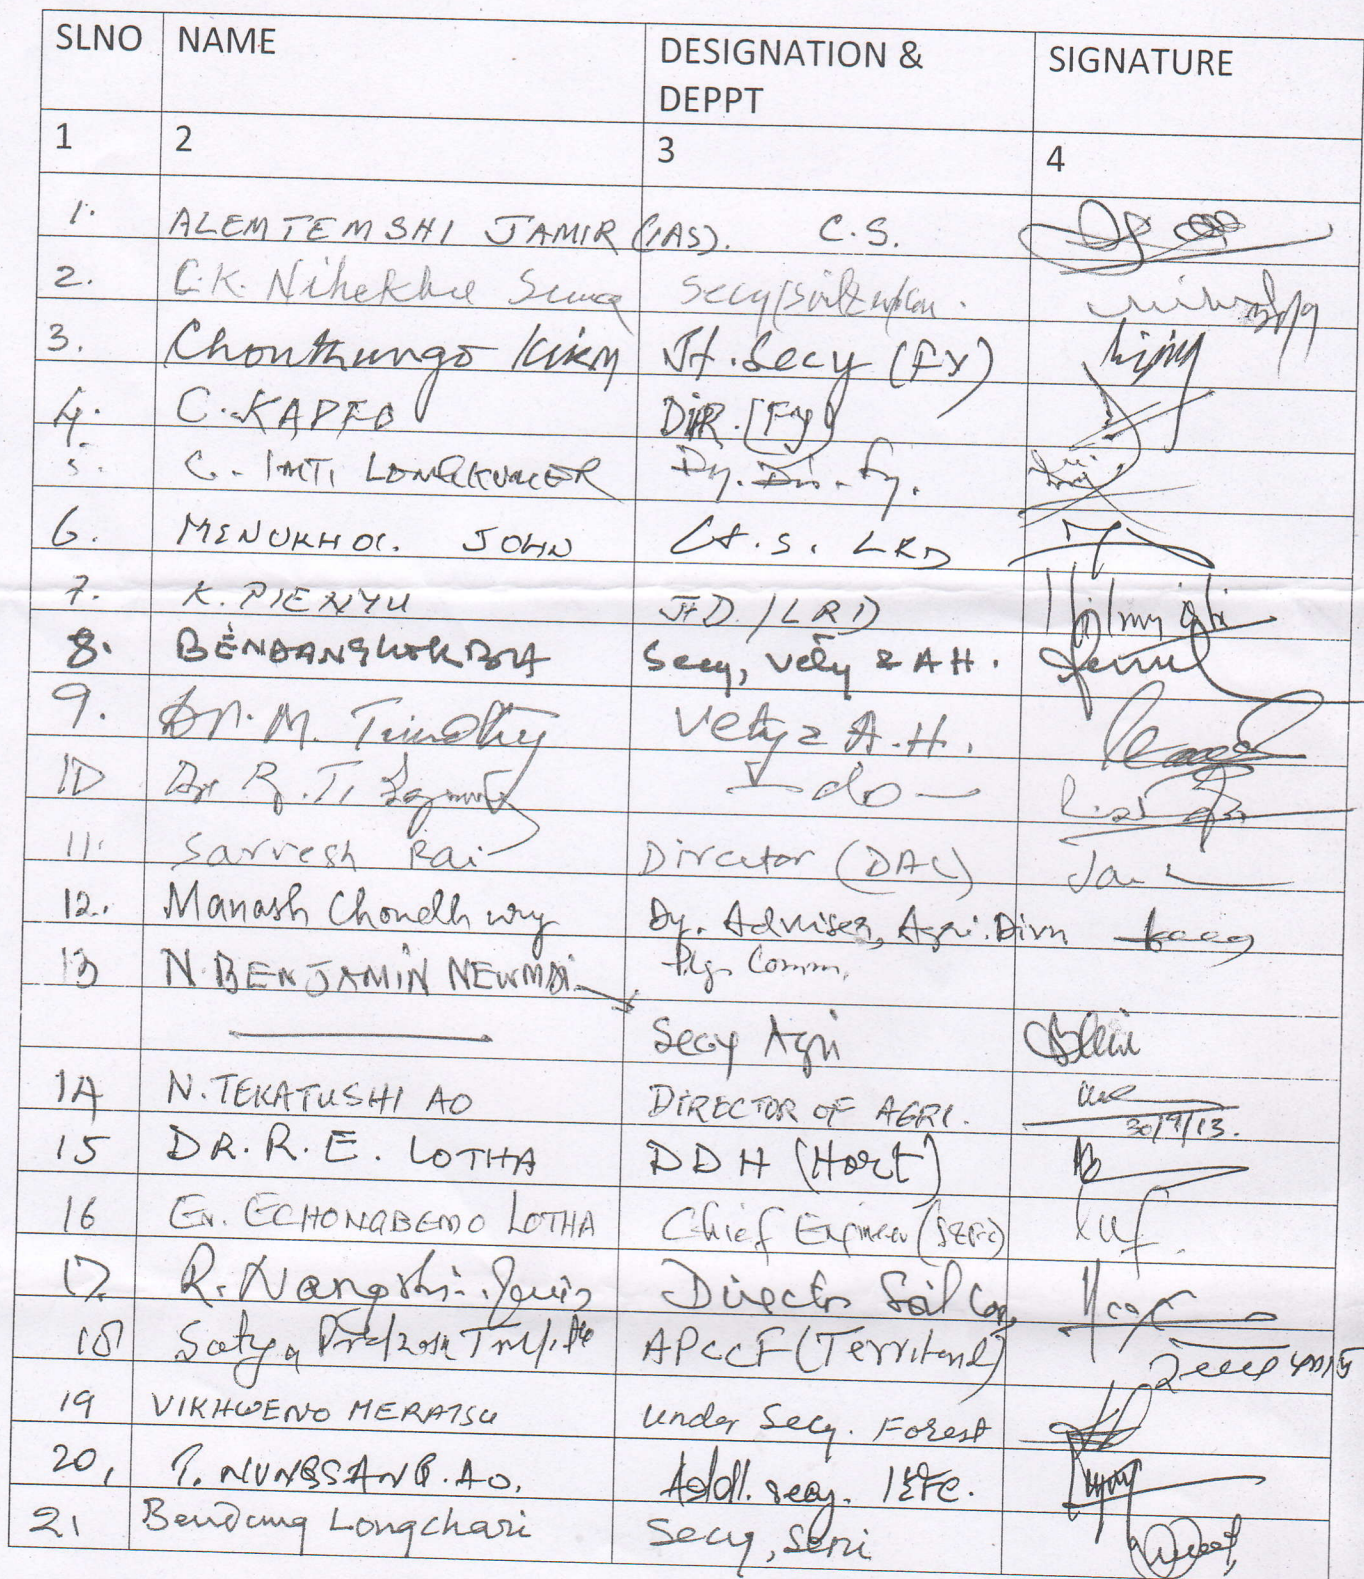 SLNO NAME DESIGNATION & DEPPT SIGNATURE
1 2 3 4
1. ALEMTEMSHI JAMIR (IAS). C.S.
2. C.K. Nihekhu
3. Chonthungo Kikon Jt. Secy (FY)
4. C. KAPFO DIR. (Fy)
5. C. IMTI LONGKUMER Dy. Dir. Fy.
6. MENUKHOL JOHN LRD
7. K. PIENYU JtD / LRD
8. BENDANGKOKBA Secy, Vety & AH.
9. Dr. M. Timothy Vety & A.H.
10 Dr. R. T. — do —
11. Sarvesh Rai Director (DAC)
12. Manash Choudhury Dy. Adviser, Agri. Divn
Plg. Comm.
13 N. BENJAMIN NEWMAI
Secy Agri
14 N. TEKATUSHI AO DIRECTOR OF AGRI.
30/9/13.
15 DR. R. E. LOTHA DDH (Hort)
16 Er. ECHONGBEMO LOTHA Chief Engineer
17 R. Nangshi Director Soil Con
18 Satya Prakash Tripathi APCCF (Territorial)
19 VIKHWENO MERATSU Under Secy. Forest
20. T. NUNGSANG. AO. Addl. Secy. I&FC.
21 Bendang Longchari Secy, Seri